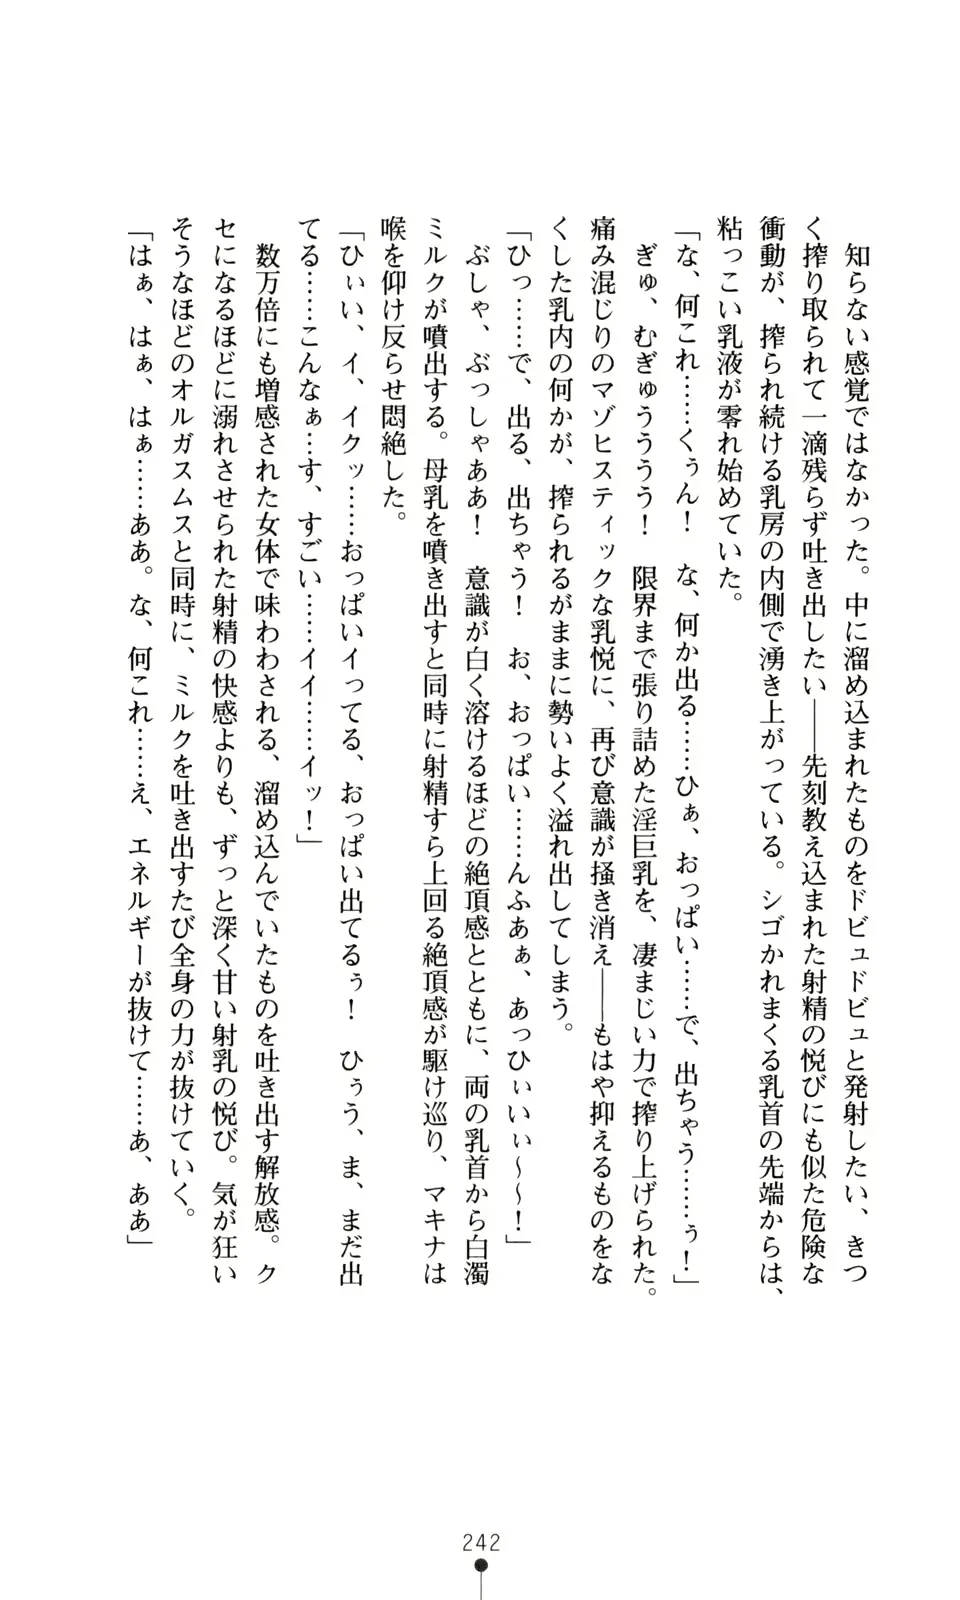 知らない感覚ではなかった。中に溜め込まれたものをドビュドビュと発射したい、きつ
く搾り取られて一滴残らず吐き出したい――先刻教え込まれた射精の悦びにも似た危険な
衝動が、搾られ続ける乳房の内側で湧き上がっている。シゴかれまくる乳首の先端からは、
粘っこい乳液が零れ始めていた。
「な、何これ……くぅん！　な、何か出る……ひぁ、おっぱい……で、出ちゃう……ぅ！」
　ぎゅ、むぎゅうううう！　限界まで張り詰めた淫巨乳を、凄まじい力で搾り上げられた。
痛み混じりのマゾヒスティックな乳悦に、再び意識が掻き消え――もはや抑えるものをな
くした乳内の何かが、搾られるがままに勢いよく溢れ出してしまう。
「ひっ……で、出る、出ちゃう！　お、おっぱい……んふあぁ、あっひぃいぃ～～！」
　ぶしゃ、ぶっしゃああ！　意識が白く溶けるほどの絶頂感とともに、両の乳首から白濁
ミルクが噴出する。母乳を噴き出すと同時に射精すら上回る絶頂感が駆け巡り、マキナは
喉を仰け反らせ悶絶した。
「ひぃい、イ、イクッ……おっぱいイってる、おっぱい出てるぅ！　ひぅう、ま、まだ出
てる……こんなぁ…す、すごい……イイ……イッ！」
　数万倍にも増感された女体で味わわされる、溜め込んでいたものを吐き出す解放感。ク
セになるほどに溺れさせられた射精の快感よりも、ずっと深く甘い射乳の悦び。気が狂い
そうなほどのオルガスムスと同時に、ミルクを吐き出すたび全身の力が抜けていく。
「はぁ、はぁ、はぁ……ああ。な、何これ……え、エネルギーが抜けて……あ、ああ」
242